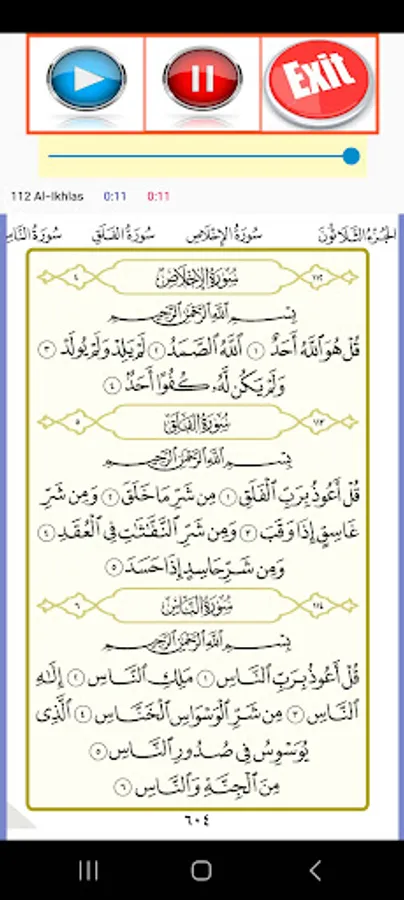 Exit
112 Al-Ikhlas 0:11 0:11
الجزء الثلاثون سورة الإخلاص سورة الفلق سورة الناس
١١٢ سُورَةُ الإِخْلَاصِ ٤
بِسْمِ ٱللَّهِ ٱلرَّحْمَٰنِ ٱلرَّحِيمِ
قُلْ هُوَ ٱللَّهُ أَحَدٌ ١ ٱللَّهُ ٱلصَّمَدُ ٢ لَمْ يَلِدْ وَلَمْ يُولَدْ ٣
وَلَمْ يَكُن لَّهُۥ كُفُوًا أَحَدٌۢ ٤
١١٣ سُورَةُ الفَلَقِ ٥
بِسْمِ ٱللَّهِ ٱلرَّحْمَٰنِ ٱلرَّحِيمِ
قُلْ أَعُوذُ بِرَبِّ ٱلْفَلَقِ ١ مِن شَرِّ مَا خَلَقَ ٢ وَمِن شَرِّ
غَاسِقٍ إِذَا وَقَبَ ٣ وَمِن شَرِّ ٱلنَّفَّٰثَٰتِ فِى ٱلْعُقَدِ ٤
وَمِن شَرِّ حَاسِدٍ إِذَا حَسَدَ ٥
١١٤ سُورَةُ النَّاسِ ٦
بِسْمِ ٱللَّهِ ٱلرَّحْمَٰنِ ٱلرَّحِيمِ
قُلْ أَعُوذُ بِرَبِّ ٱلنَّاسِ ١ مَلِكِ ٱلنَّاسِ ٢ إِلَٰهِ
ٱلنَّاسِ ٣ مِن شَرِّ ٱلْوَسْوَاسِ ٱلْخَنَّاسِ ٤ ٱلَّذِى
يُوَسْوِسُ فِى صُدُورِ ٱلنَّاسِ ٥
مِنَ ٱلْجِنَّةِ وَٱلنَّاسِ ٦
٦٠٤